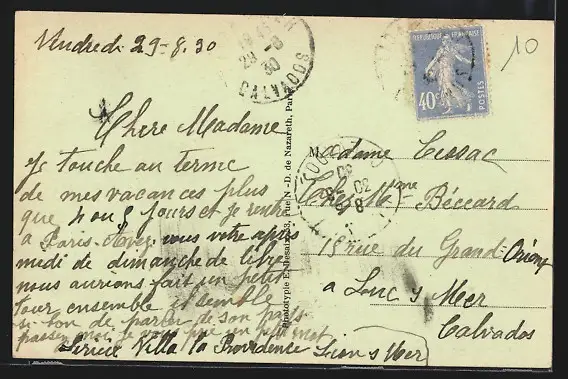 Vendredi 29-8.30
CALVADOS
30
REPUBLIQUE FRANÇAISE
40c
POSTES
10
Chere Madame
Je touche au terme
de mes vacances plus
que 4 ou 5 jours et je rentre
a Paris. Avez vous votre apres
midi de dimanche de libre
nous aurions fait un petit
tour ensemble il semble
si bon de parler de son pays
passez moi je vous prie un petit mot
Lerieux Villa la Providence Lion s Mer
Phototypie E. Desaix, 83, rue N.-D. de Nazareth, Paris
Madame Cossac
Chez Mme Béccard
18 rue du Grand Orient
a Luc s Mer
Calvados